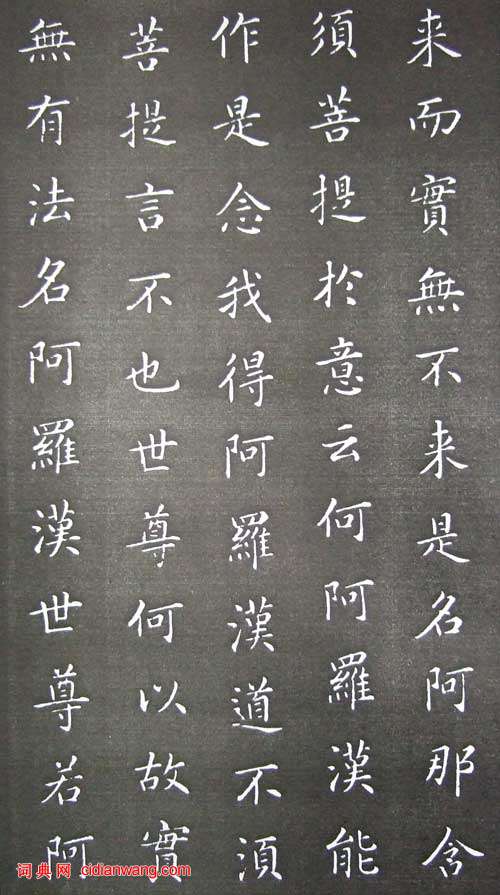 来而實無不来是名阿那含
須菩提於意云何阿羅漢能
作是念我得阿羅漢道不須
菩提言不也世尊何以故實
無有法名阿羅漢世尊若阿
词典网 cidianwang.com